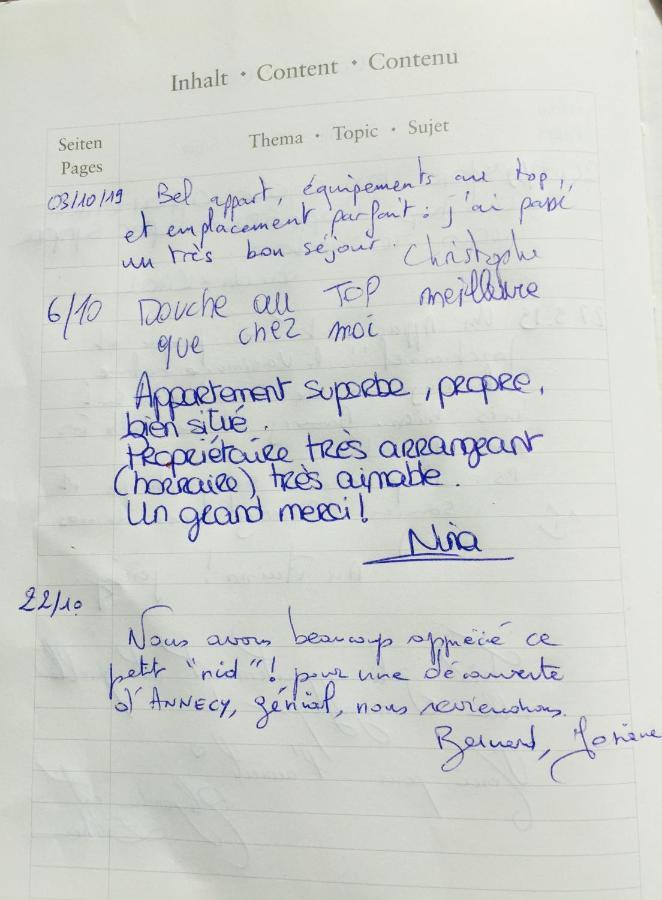 Inhalt • Content • Contenu
Seiten
Pages
Thema • Topic • Sujet
03/10/19 Bel appart, équipements au top,
et emplacement parfait : j'ai passé
un très bon séjour. Christophe
6/10 Douche au TOP meilleure
que chez moi
Appartement superbe, propre,
bien situé.
Propriétaire très arrangeant
(horraire) très aimable.
Un grand merci !
Nina
22/10
Nous avons beaucoup apprécié ce
petit "nid" ! pour une découverte
d'ANNECY, génial, nous reviendrons.
Bernard, Josiane